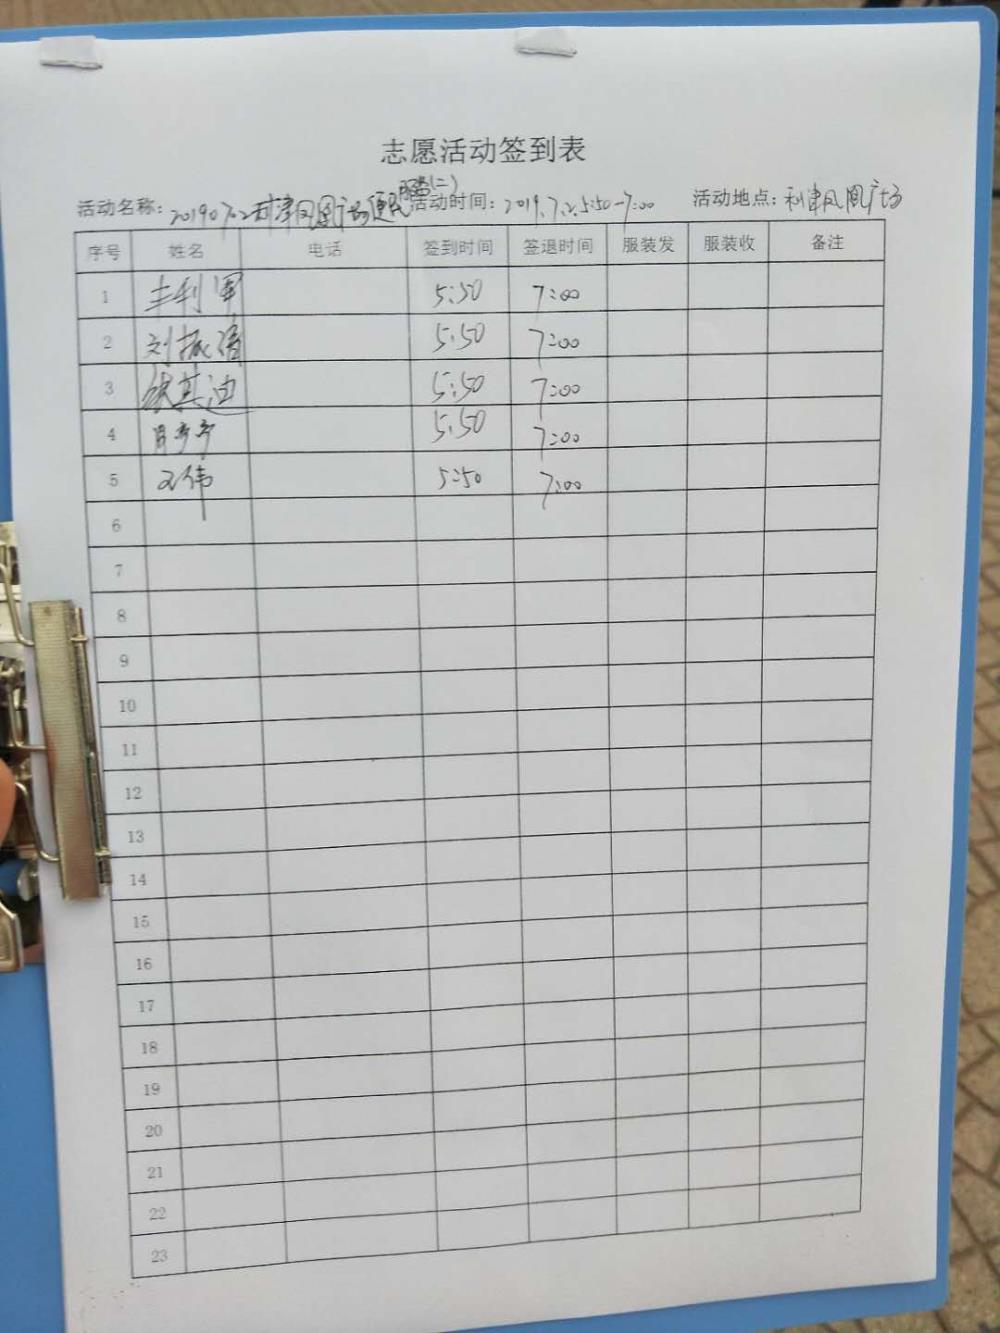 志愿活动签到表
服务(二)
活动名称: 20190702利津凤凰广场便民 活动时间: 2019.7.2.5:50-7:00 活动地点: 利津凤凰广场
序号 姓名 电话 签到时间 签退时间 服装发 服装收 备注
1 5:50 7:00
2 刘振 5:50 7:00
3 5:50 7:00
4 5:50 7:00
5 伟 5:50 7:00
6
7
8
9
10
11
12
13
14
15
16
17
18
19
20
21
22
23